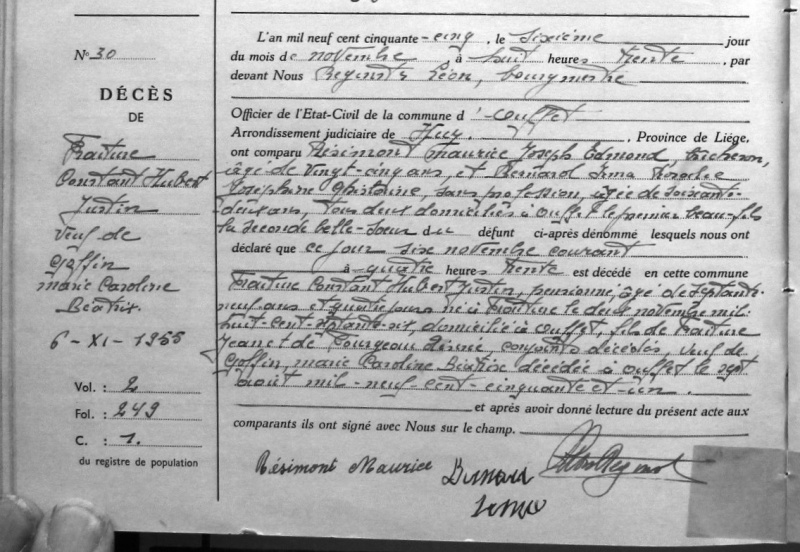 N° 30
DÉCÈS
DE
Fraiture
Constant Hubert
Justin
veuf de
Goffin
Marie Caroline
Béatrix
6 - XI - 1955
Vol. : 2
Fol. : 249
C. : 1.
du registre de population
L'an mil neuf cent cinquante-cinq, le sixième jour
du mois de novembre, à huit heures trente, par
devant Nous Léon, bourgmestre
Officier de l'Etat-Civil de la commune d'Ouffet
Arrondissement judiciaire de Huy, Province de Liége,
ont comparu Résimont Maurice Joseph Edmond,
âgé de vingt-cinq ans, et Bernard Irma
Joséphine Ghislaine, sans profession, âgée de soixante-
deux ans, tous deux domiciliés à Ouffet le premier beau-fils
la seconde belle-soeur du défunt ci-après dénommé lesquels nous ont
déclaré que ce jour six novembre courant
à quatre heures trente est décédé en cette commune
Fraiture Constant Hubert Justin, pensionné, âgé de septante-
neuf ans et quatre jours né à Fraiture le deux novembre mil-
huit-cent-septante-six, domicilié à Ouffet, fils de Fraiture
Jean et de Désiré, conjoints décédés, veuf de
Goffin Marie Caroline Béatrix décédée à Ouffet le sept
août mil-neuf-cent-cinquante et un.
et après avoir donné lecture du présent acte aux
comparants ils ont signé avec Nous sur le champ.
Résimont Maurice
Bernard
Irma